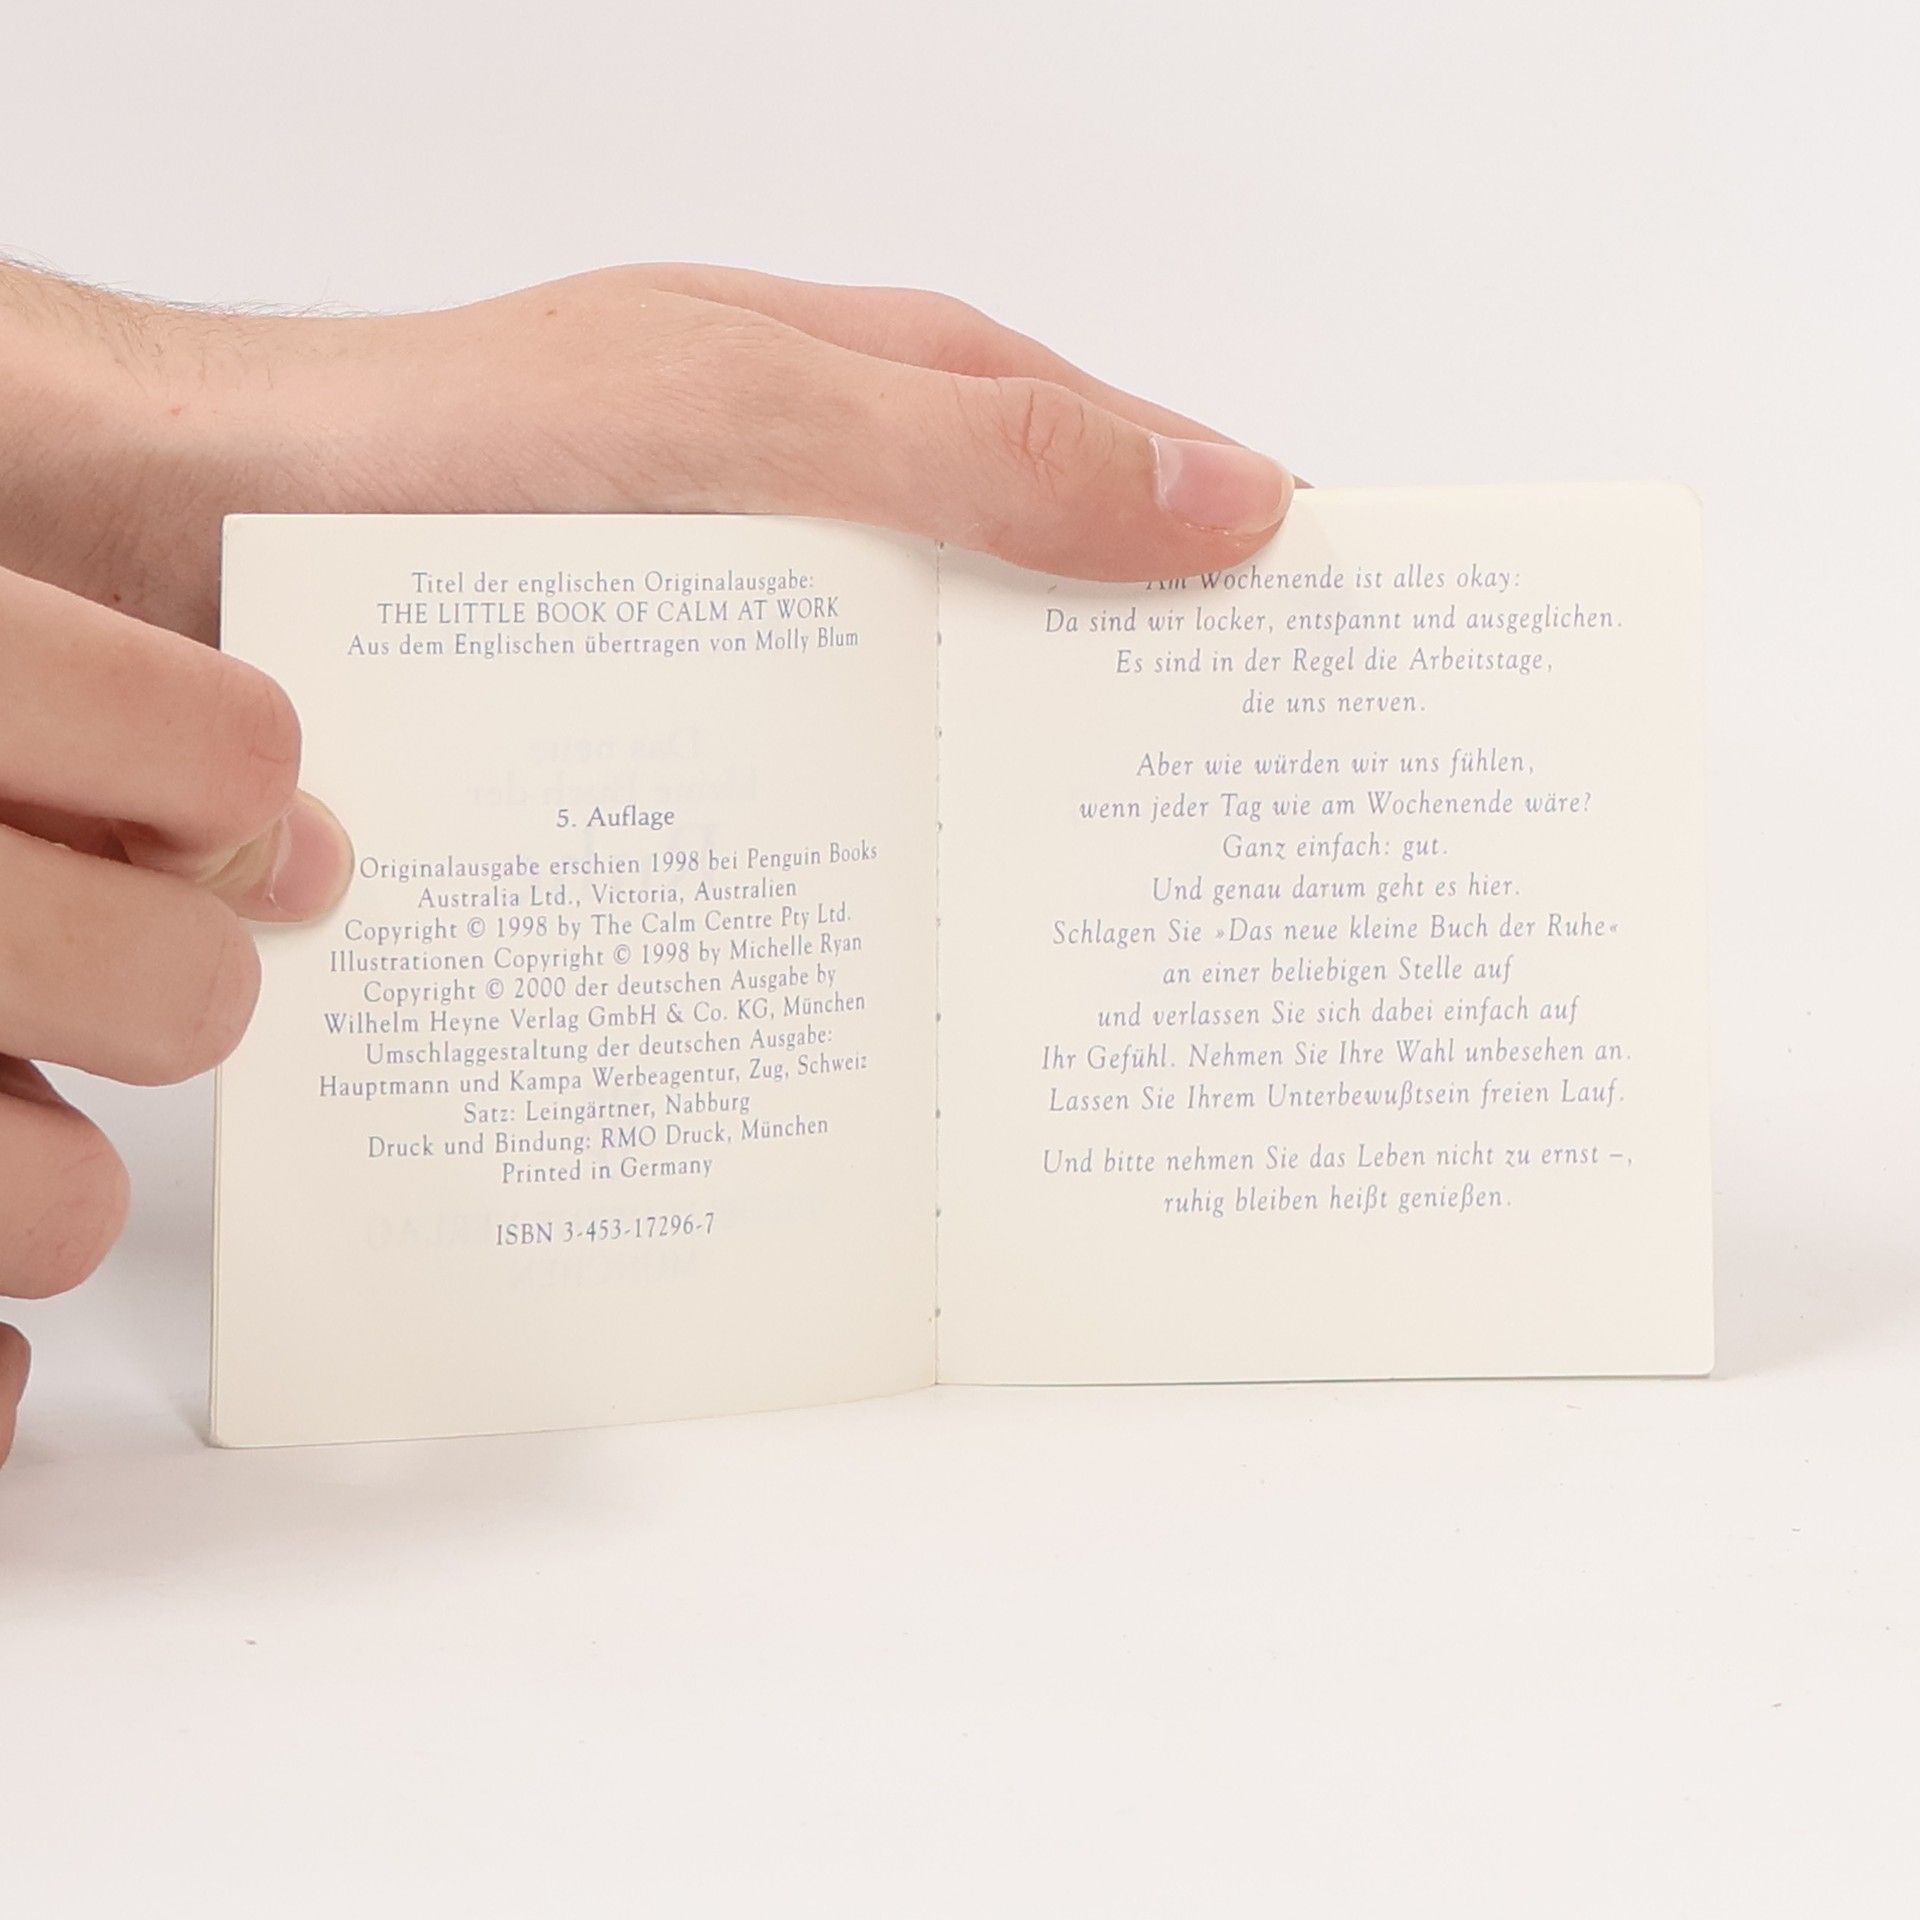 Titel der englischen Originalausgabe:
THE LITTLE BOOK OF CALM AT WORK
Aus dem Englischen übertragen von Molly Blum
5. Auflage
Originalausgabe erschien 1998 bei Penguin Books
Australia Ltd., Victoria, Australien
Copyright © 1998 by The Calm Centre Pty Ltd.
Illustrationen Copyright © 1998 by Michelle Ryan
Copyright © 2000 der deutschen Ausgabe by
Wilhelm Heyne Verlag GmbH & Co. KG, München
Umschlaggestaltung der deutschen Ausgabe:
Hauptmann und Kampa Werbeagentur, Zug, Schweiz
Satz: Leingärtner, Nabburg
Druck und Bindung: RMO Druck, München
Printed in Germany
ISBN 3-453-17296-7
Am Wochenende ist alles okay:
Da sind wir locker, entspannt und ausgeglichen.
Es sind in der Regel die Arbeitstage,
die uns nerven.
Aber wie würden wir uns fühlen,
wenn jeder Tag wie am Wochenende wäre?
Ganz einfach: gut.
Und genau darum geht es hier.
Schlagen Sie »Das neue kleine Buch der Ruhe«
an einer beliebigen Stelle auf
und verlassen Sie sich dabei einfach auf
Ihr Gefühl. Nehmen Sie Ihre Wahl unbesehen an.
Lassen Sie Ihrem Unterbewußtsein freien Lauf.
Und bitte nehmen Sie das Leben nicht zu ernst –,
ruhig bleiben heißt genießen.